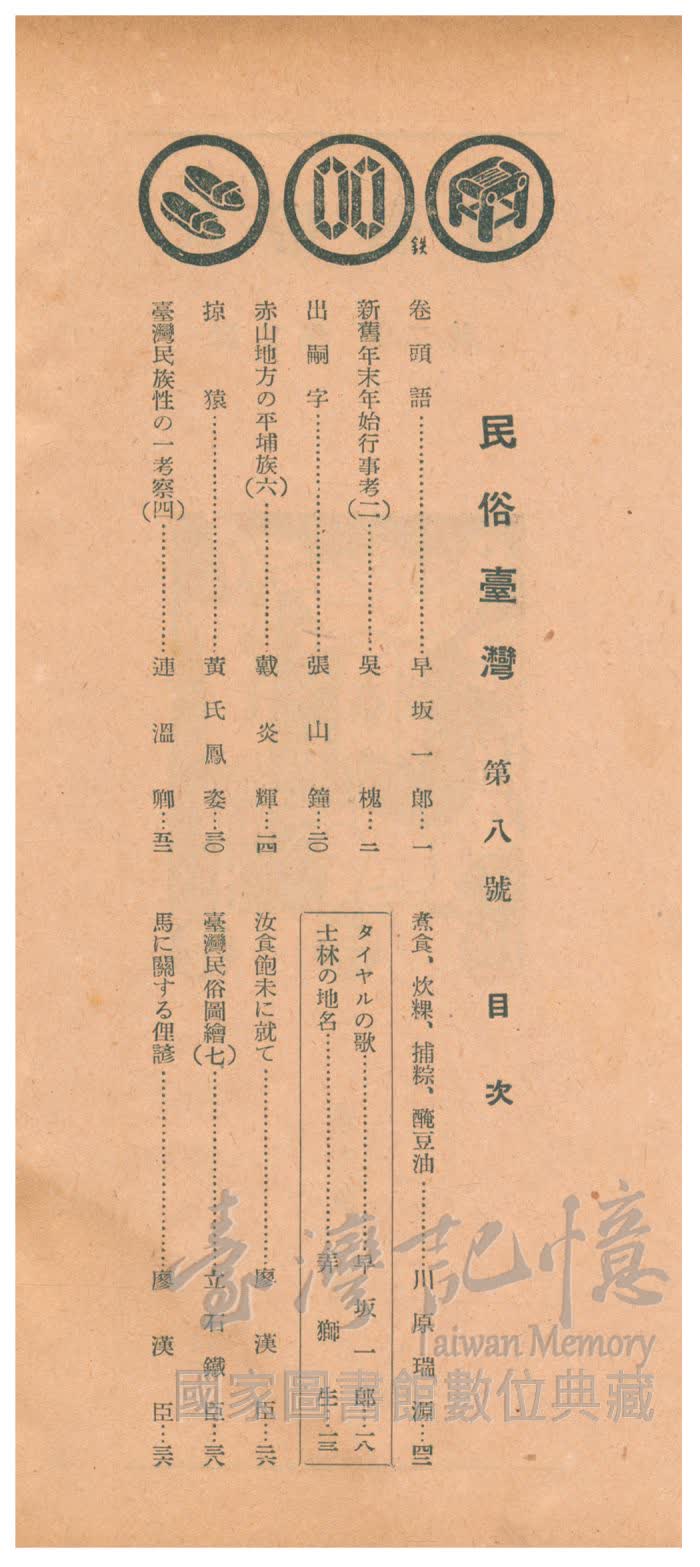 鉄
民俗臺灣 第八號 目次
卷頭語……早坂一郎…一
新舊年末年始行事考(二)……吳槐…二
出嗣字……張山鐘…二〇
赤山地方の平埔族(六)……戴炎輝…一四
掠猿……黃氏鳳姿…三〇
臺灣民族性の一考察(四)……連溫卿…五二
煮食、炊粿、捕粽、醃豆油……川原瑞源…四二
タイヤルの歌……早坂一郎…一八
士林の地名……弄獅生…一三
汝食飽未に就て……廖漢臣…二六
臺灣民俗圖繪(七)……立石鐵臣…三八
馬に關する俚諺……廖漢臣…三六
臺灣記憶
Taiwan Memory
國家圖書館數位典藏